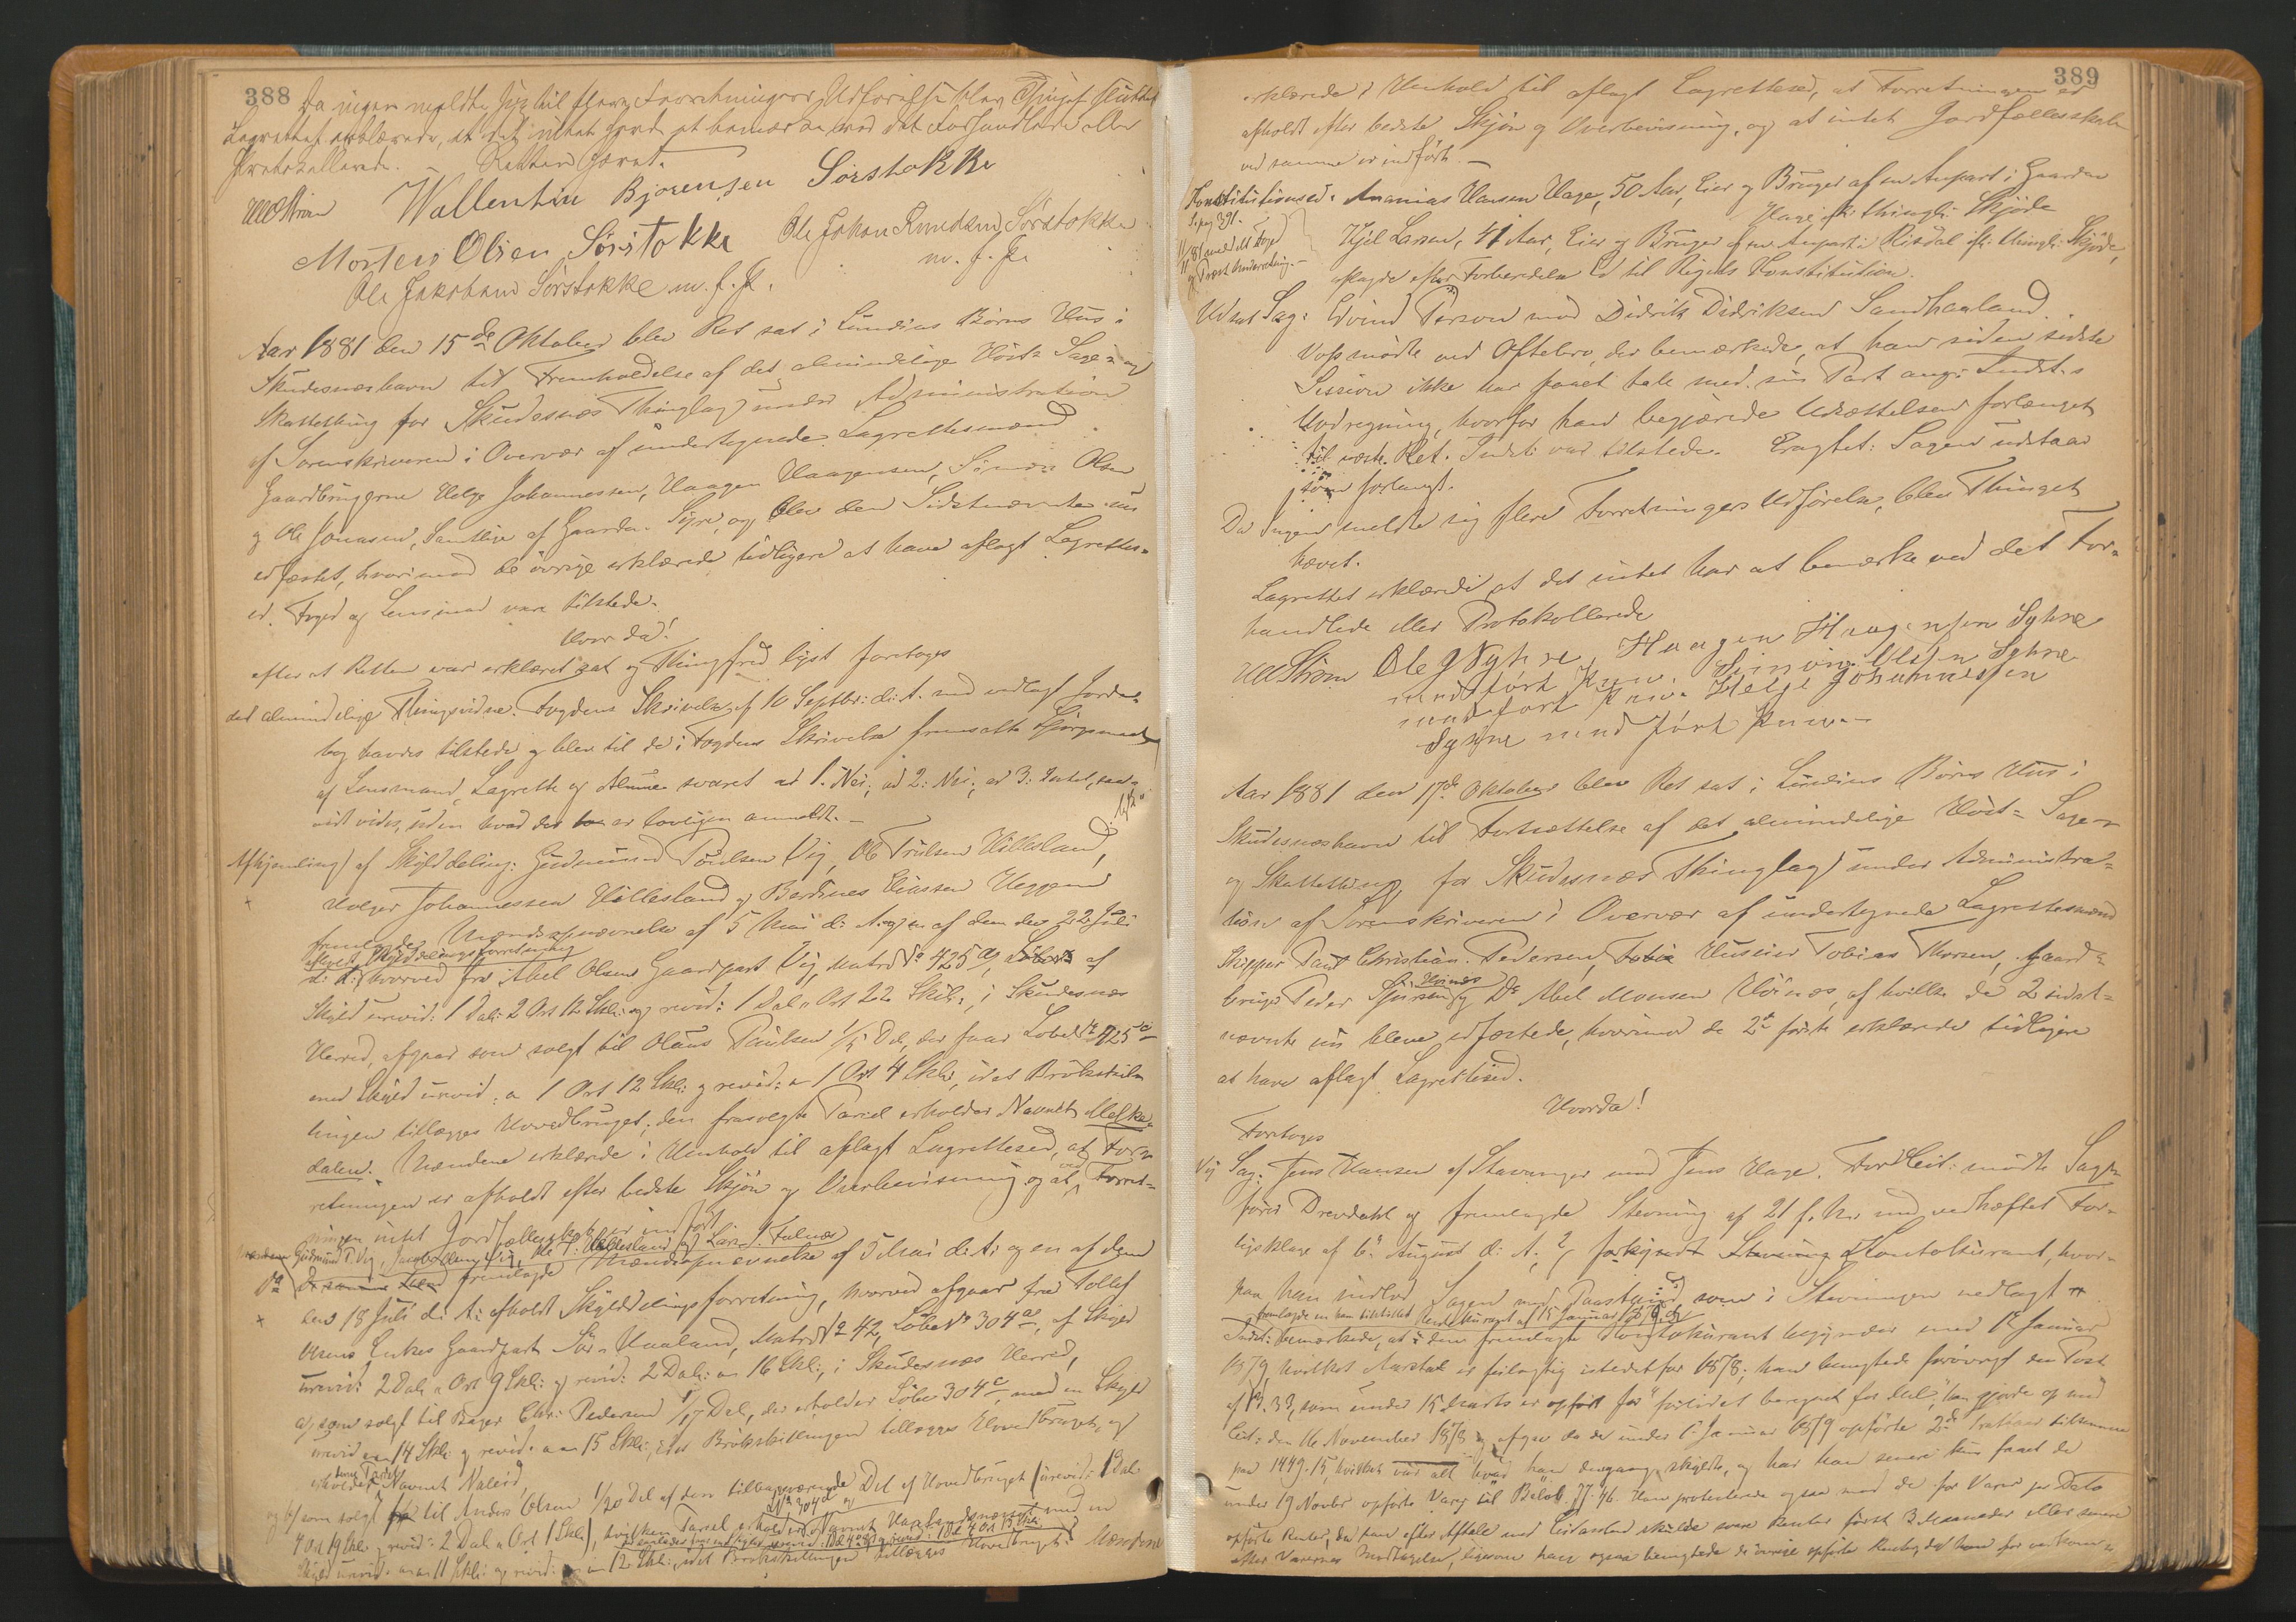 388
Da ingen meldte sig til flere Forretningers Udførelse blev Thinget sluttet
Lagrettet erklærede, at det intet havde at bemærke ved det Forhandlede eller
Protokollerede. Retten hævet.
Wallentin Bjørensen Sørstokke
Morten Olsen Sørstokke Ole Johan Knudsen Sørstokke
m. f. P.
Ole Jakobsen Sørstokke m. f. P.
Aar 1881 den 15de Oktober blev Ret sat i Lundins Børns Hus i
Skudesneshavn til Fremholdelse af det almindelige Høst- Sage- og
Skattething for Skudesnes Thinglag under Administration
af Sorenskriveren i Overvær af undertegnede Lagrettesmænd
Gaardbrugerne Helge Johannessen, Haagen Haagensen, Simon Olsen
og Ole Jonasen, Samtlige af Gaarden Syre, og blev den Sidstnævnte nu
edfæstet, hvorimod de øvrige erklærede tidligere at have aflagt Lagrettes-
ed. Foged og Lensmand vare tilstede.
Hvor da!
efter at Retten var erklæret sat og Thingfred lyst foretoges
det almindelige Thingsvidne. Fogdens Skrivelse af 10 Septbr: d: A. med vedlagt Jorde-
bog havdes tilstede og blev til de i Fogdens Skrivelse fremsatte Spørgsmaal
af Lensmand, Lagrette og Almue svaret ad 1. Nei, ad 2: Nei, ad 3: Intet, saa-
vidt vides, uden hvad der er lovligen anmeldt. —
Afhjemling af Skylddeling: Gudmund Poulsen Vig, Ole Trulsen Hillesland,
Holger Johannessen Hillesland og Berdines Eliassen Heggem
fremlagde Mændsopnævnelse af 5 Mai d: A. og en af dem den 22 Juli
afholdt Skylddelingsforretning
d: A: hvorved fra Abel Olsens Gaardpart Vig, Matr No 425 a, af
Skyld urevid: 1 Dal: 2 Ort 12 Skl: og revid: 1 Dal. " Ort 22 Skil:, i Skudesnes
Herred, afgaar som solgt til Olaus Paulsen 1/5 Del, der faar Løbe No 425 c
med Skyld urevid: " 1 Ort 12 Skl: og revid: " 1 Ort 4 Skl:, idet Brøkskil-
lingen tillægges Hovedbruget; den frasolgte Parcel erholder Navnet Melke-
dalen. Mændene erklærede i Henhold til aflagt Lagrettesed, at For-
retningen er afholdt efter bedste Skjøn og Overbevisning og at ved Forret-
ningen intet Jordfællesskab er indført
Gudmund P. Vig, Ole T. Hillesland og Lars Falnæs
Do De samme Mænd fremlagde Mændsopnævnelse af 5 Mai d: A: og en af dem
den 18 Juli d: A: afholdt Skylddelingsforretning, hvorved afgaar fra Tollef
Enkes Gaardpart Sør-Haaland, Matr No 42, Løbe No 304 a, af Skyld
urevid: 2 Dal: " Ort 9 Skl: og revid: 2 Dal: " 16 Skl:, i Skudesnes Herred,
a, som solgt til Bager Chr: Pedersen 1/17 Del, der erholder Løbe 304 c med en Skyld
urevid: " " 14 Skl: og revid: " " 15 Skl:, idet Brøkskillingen tillægges Hovedbruget, og
erholder denne Parcel Navnet
og b, som solgt til Anders Olsen 1/20 Del af den tilbageværende Del af Hovedbruget (urevid: 1 Dal
4 Ort 19 Skl: og revid: 2 Dal " Ort 1 Skl:), hvilken Parsel erholder No 304 d og Navnet med en
Skyld urevid: " " 11 Skl: og revid: " " 12 Skl:, idet Brøkskillingen tillægges Hovedbruget. Mændene
389
erklærede i Henhold til aflagt Lagrettesed, at Forretningen er
afholdt efter bedste Skjøn og Overbevisning, og at intet Jordfællesskab
ved samme er indført. —
Konstitutionsed: Ananias Hansen Hage, 50 Aar, Eier og Bruger af en Anpart i Gaarden
Hage ifl: thingl: Skjøde
Se pag 391.
Kjel Larsen, 41 Aar, Eier og Bruger af en Anpart i Risdal ifl: thingl: Skjøde,
aflagde efter Forberedelse Ed til Rigets Konstitution.
Udsat Sag: Eivind Person mod Didrik Didriksen Sandhaaland.
Voss mødte ved Oftebro, der bemærkede, at han siden sidste
Session ikke har faaet tale med sin Part ang: Indst:s
Modregning, hvorfor han begjærede Udsættelsen forlænget
til næste Ret. Indst: var tilstede. Eragtet: Sagen udstaar
som forlangt.
Da Ingen meldte sig flere Forretningers Udførelse, blev Thinget
hævet.
Lagrettet erklærede, at det intet har at bemærke ved det For-
handlede eller Protokollerede
Ole J Syhre, Haagen Haagensen Syhre
med ført Pen. Simon Olsen Syhre
med ført Pen. Helge Johannessen
Syhre med ført Pen. —
Aar 1881 den 17de Oktober blev Ret sat i Lundins Børns Hus i
Skudesneshavn til Fortsættelse af det almindelige Høst- Sage-
og Skattething for Skudesnes Thinglag under Administra-
tion af Sorenskriveren i Overvær af undertegnede Lagrettesmænd
Skipper Paul Christian Pedersen, Huseier Tobias Thorsen, Gaard-
bruger Peder Sjursen Høines og Do Abel Monsen Høines, af hvilke de 2 sidst-
nævnte nu bleve edfæstede, hvorimod de 2de første erklærede tidligere
at have aflagt Lagrettesed.
Hvorda!
Foretoges
Ny Sag: Jens Hansen af Stavanger mod Jens Hage. For Cit: mødte Sag-
fører Drevdahl og fremlagde Stevning af 21 f. M. med vedhæftet For-
ligsklage af 6 August d: A. og Kontokurant, hvor-
paa han indlod Sagen med Paastand som i Stevningen nedlagt
Indst: bemærkede, at den fremlagte Kontokurant begynder med 1 Januar
1879, hvilket Aarstal er feilagtig istedetfor 1878; han benegtede forøvrigt den Post
af 33, som under 15 Marts er opført for "forlidet beregnet for Mel", han gjorde op med
Cit: den 16 November 1878 og afgav da de under 1 Januar 1879 opførte 2de tilsammen
paa 1449.15, hvilket var alt hvad han dengang skyldte, og har han senere kun faaet de
under 19 Novbr opførte Varer til Beløb 77.46. Han protesterede ogsaa mod de for Varer pr Dato
opførte Renter, da han efter Aftale med Citanten skulde svare Renter først 3 Maaneder eller senere
efter Varernes Modtagelse, ligesom han ogsaa benegtede de øvrige opførte Renter,